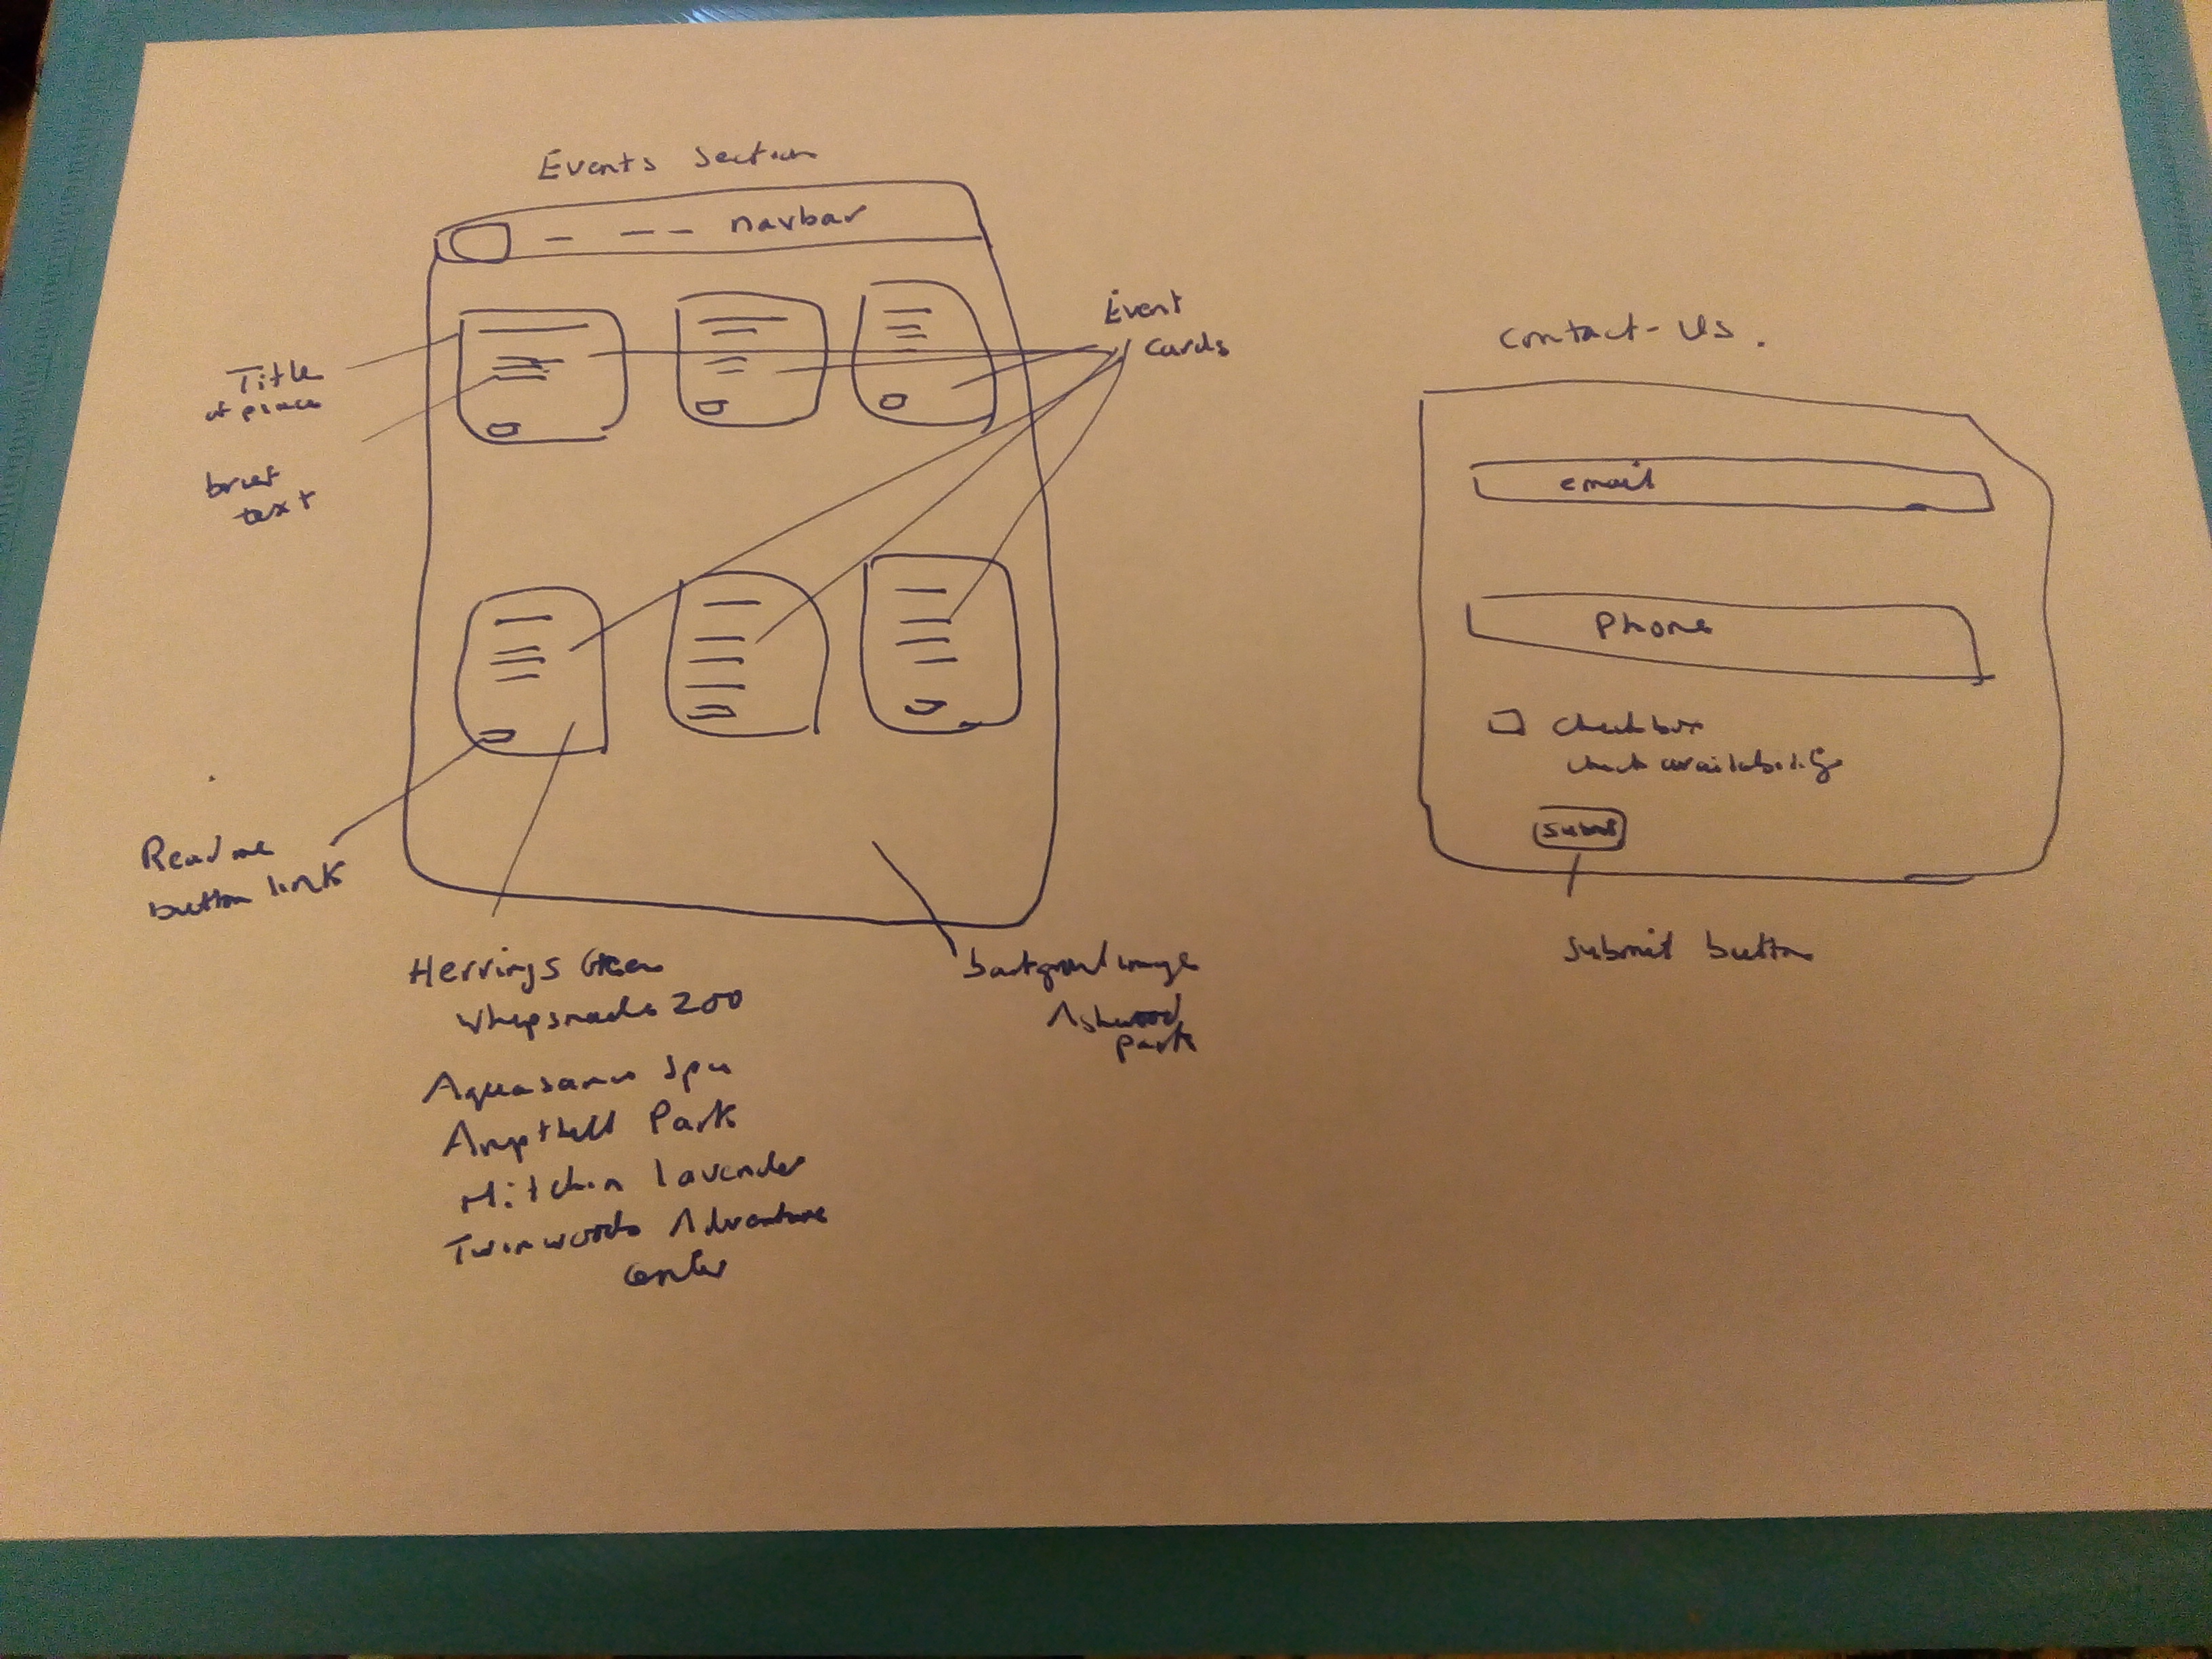 Events Section
navbar
Event
cards
Title
of place
brief
text
Read me
button link
Herrings Green
Whipsnade zoo
Aquasanus Spa
Ampthill Park
Hitchin lavender
Twinwoods Adventure
center
background image
Ashwood
park
Contact-Us.
email
Phone
checkbox
check availability
submit
submit button